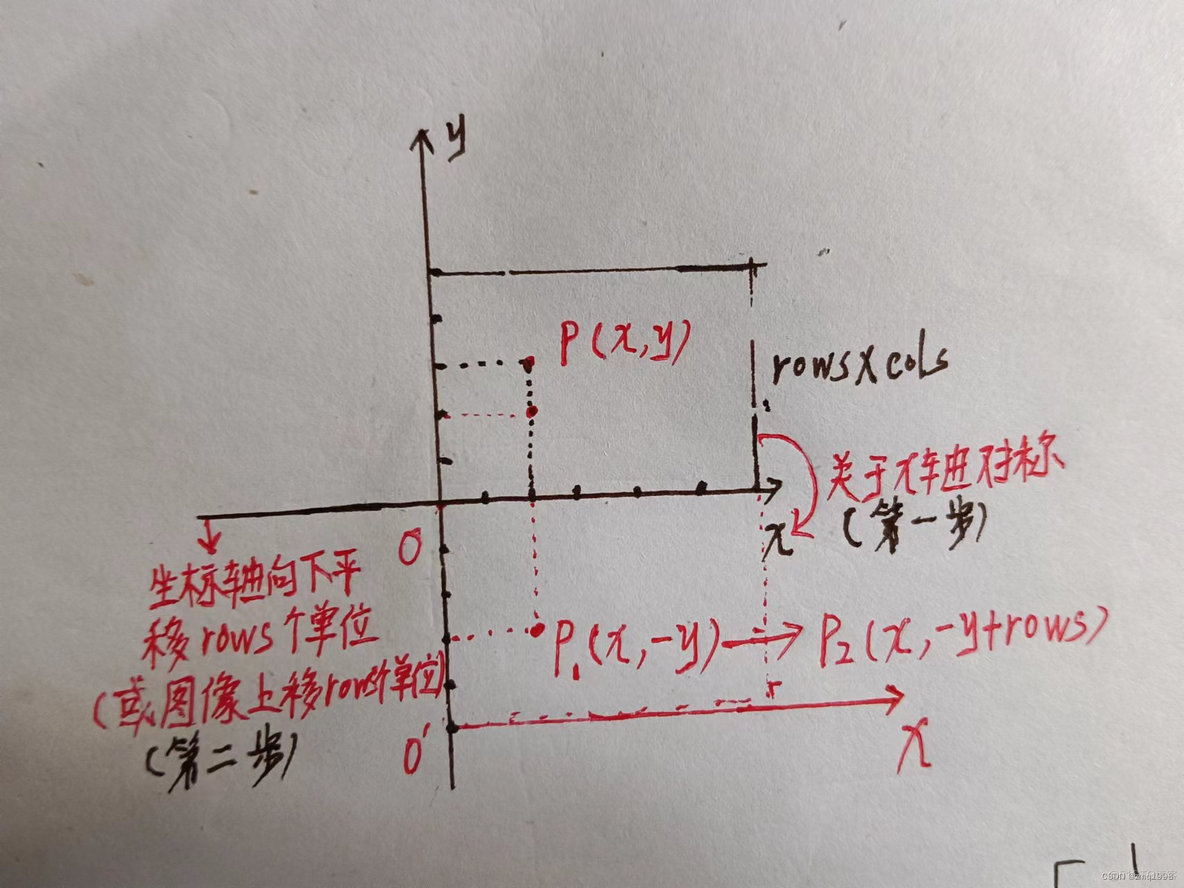 y
P(x,y)
rows×cols
关于x轴进对称
(第一步)
x
O
坐标轴向下平
移rows个单位
(或图像上移rows个单位)
(第二步)
P₁(x,-y)→P₂(x,-y+rows)
O'
x